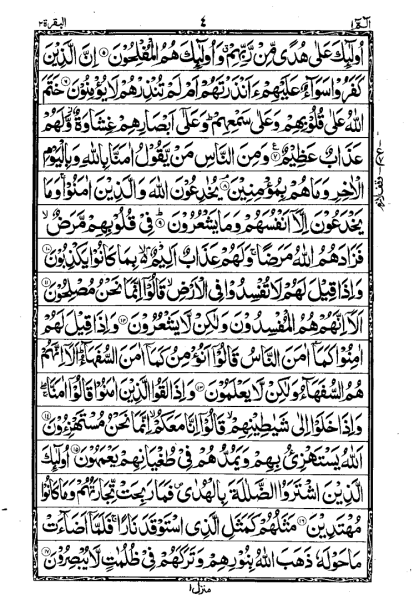 الٓمّٓ ١ ٤ البقرة ٢
اُولٰٓئِكَ عَلٰى هُدًى مِّنْ رَّبِّهِمْ ۗ وَاُولٰٓئِكَ هُمُ الْمُفْلِحُوْنَ ﴿٥﴾ اِنَّ الَّذِيْنَ
كَفَرُوْا سَوَآءٌ عَلَيْهِمْ ءَاَنْذَرْتَهُمْ اَمْ لَمْ تُنْذِرْهُمْ لَا يُؤْمِنُوْنَ ﴿٦﴾ خَتَمَ
اللّٰهُ عَلٰى قُلُوْبِهِمْ وَعَلٰى سَمْعِهِمْ ؕ وَعَلٰٓى اَبْصَارِهِمْ غِشَاوَةٌ ؗ وَّلَهُمْ
عَذَابٌ عَظِيْمٌ ﴿٧﴾ وَمِنَ النَّاسِ مَنْ يَّقُوْلُ اٰمَنَّا بِاللّٰهِ وَبِالْيَوْمِ
الْاٰخِرِ وَمَا هُمْ بِمُؤْمِنِيْنَ ﴿٨﴾ يُخٰدِعُوْنَ اللّٰهَ وَالَّذِيْنَ اٰمَنُوْا ۚ وَمَا
يَخْدَعُوْنَ اِلَّاۤ اَنْفُسَهُمْ وَمَا يَشْعُرُوْنَ ﴿٩﴾ فِيْ قُلُوْبِهِمْ مَّرَضٌ ۙ
فَزَادَهُمُ اللّٰهُ مَرَضًا ۚ وَلَهُمْ عَذَابٌ اَلِيْمٌۢ ۙ بِمَا كَانُوْا يَكْذِبُوْنَ ﴿١٠﴾
وَاِذَا قِيْلَ لَهُمْ لَا تُفْسِدُوْا فِي الْاَرْضِ ۙ قَالُوْٓا اِنَّمَا نَحْنُ مُصْلِحُوْنَ ﴿١١﴾
اَلَاۤ اِنَّهُمْ هُمُ الْمُفْسِدُوْنَ وَلٰكِنْ لَّا يَشْعُرُوْنَ ﴿١٢﴾ وَاِذَا قِيْلَ لَهُمْ
اٰمِنُوْا كَمَاۤ اٰمَنَ النَّاسُ قَالُوْٓا اَنُؤْمِنُ كَمَاۤ اٰمَنَ السُّفَهَآءُ ؕ اَلَاۤ اِنَّهُمْ
هُمُ السُّفَهَآءُ وَلٰكِنْ لَّا يَعْلَمُوْنَ ﴿١٣﴾ وَاِذَا لَقُوا الَّذِيْنَ اٰمَنُوْا قَالُوْٓا اٰمَنَّا ۖۚ
وَاِذَا خَلَوْا اِلٰى شَيٰطِيْنِهِمْ ۙ قَالُوْٓا اِنَّا مَعَكُمْ ۙ اِنَّمَا نَحْنُ مُسْتَهْزِءُوْنَ ﴿١٤﴾
اَللّٰهُ يَسْتَهْزِئُ بِهِمْ وَيَمُدُّهُمْ فِيْ طُغْيَانِهِمْ يَعْمَهُوْنَ ﴿١٥﴾ اُولٰٓئِكَ
الَّذِيْنَ اشْتَرَوُا الضَّلٰلَةَ بِالْهُدٰى ۪ فَمَا رَبِحَتْ تِّجَارَتُهُمْ وَمَا كَانُوْا
مُهْتَدِيْنَ ﴿١٦﴾ مَثَلُهُمْ كَمَثَلِ الَّذِي اسْتَوْقَدَ نَارًا ۚ فَلَمَّاۤ اَضَآءَتْ
مَا حَوْلَهٗ ذَهَبَ اللّٰهُ بِنُوْرِهِمْ وَتَرَكَهُمْ فِيْ ظُلُمٰتٍ لَّا يُبْصِرُوْنَ ﴿١٧﴾
منزل ١